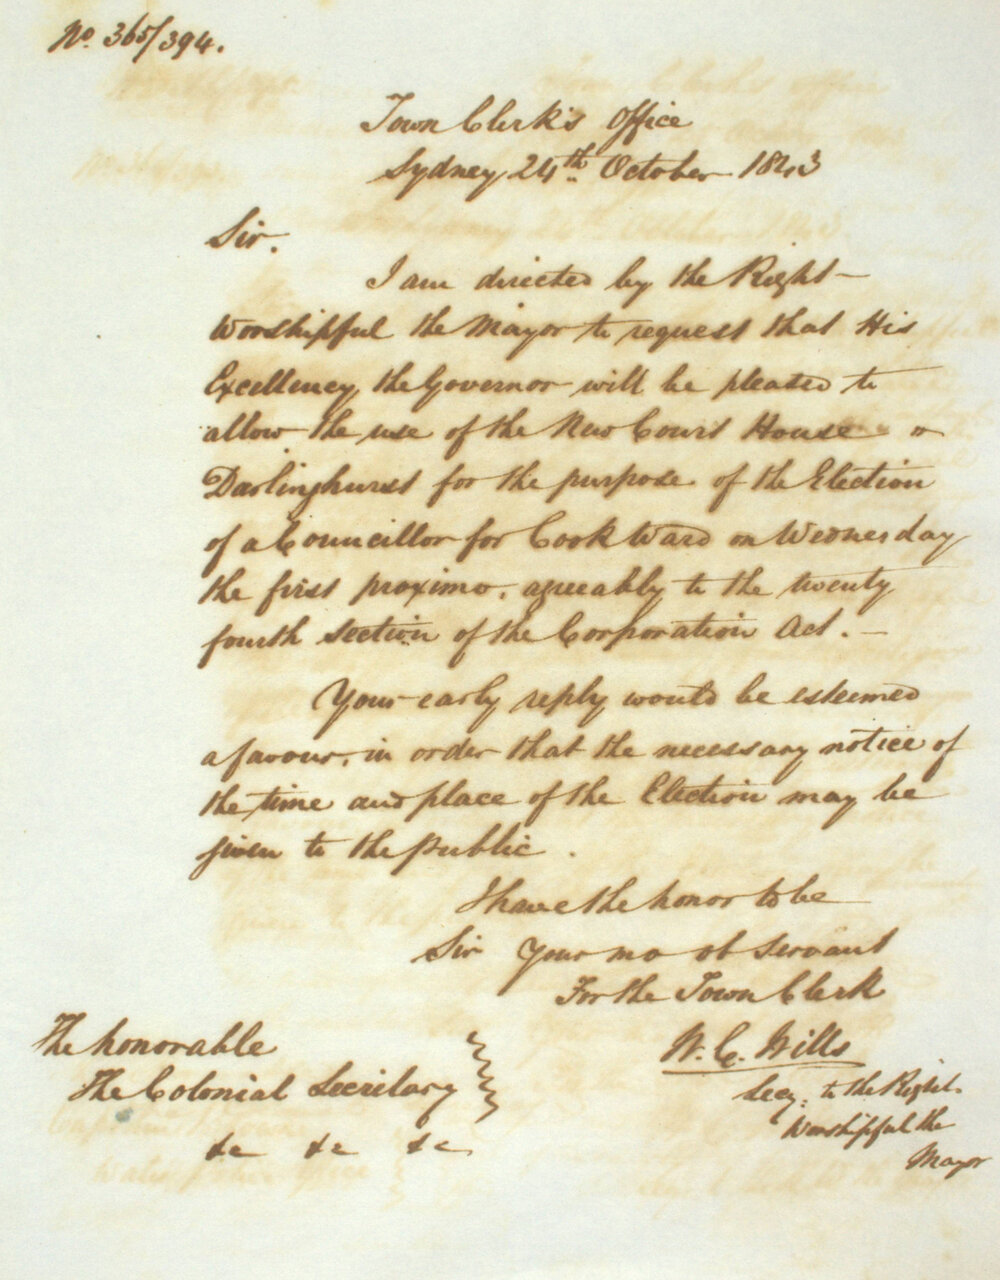 No. 365/394.
Town Clerk's Office
Sydney 24th October 1843
Sir.
I am directed by the Right
Worshipful the Mayor to request that His
Excellency the Governor will be pleased to
allow the use of the New Court House in
Darlinghurst for the purpose of the Election
of a Councillor for Cook Ward on Wednesday
the first proximo, agreeably to the twenty
fourth section of the Corporation Act. —
Your early reply would be esteemed
a favour, in order that the necessary notice of
the time and place of the Election may be
given to the public.
I have the honor to be
Sir Your mo ob Servant
For the Town Clerk
W. C. Wills
Secy. to the Right
Worshipful the
Mayor
The honorable
The Colonial Secretary
&c &c &c